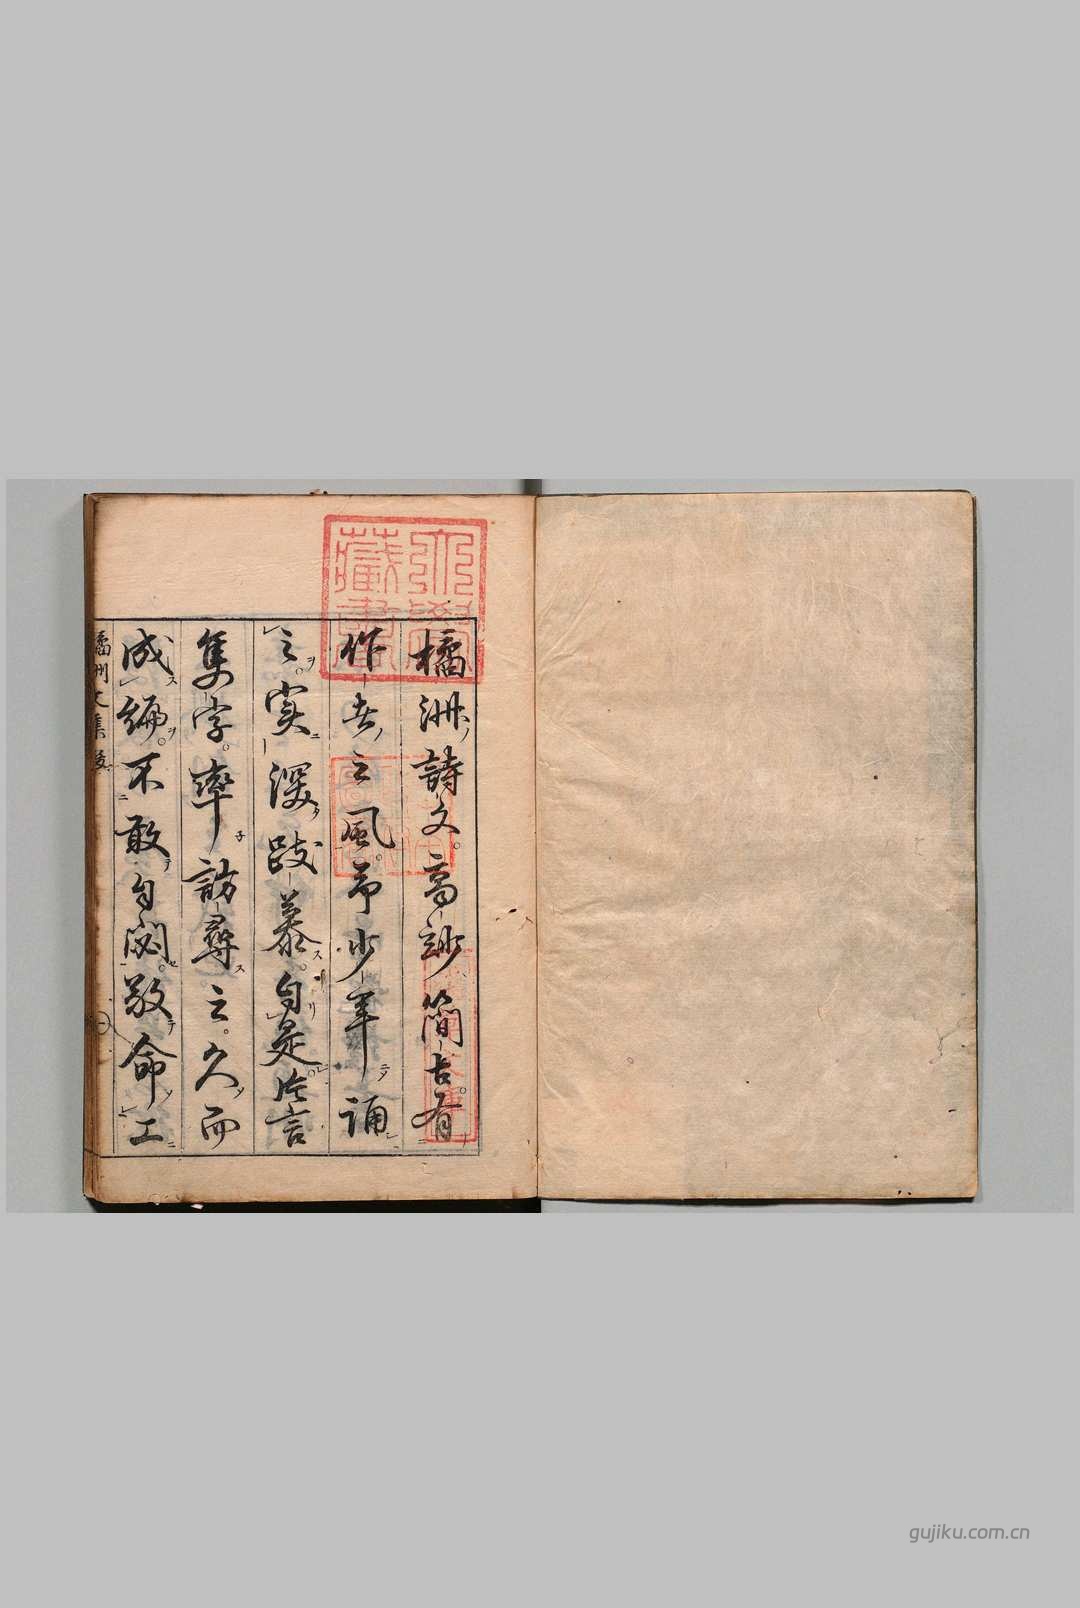 橘洲詩文高妙簡古有
作者之風予少年誦
之實深跂慕自是片言
隻字率訪尋之久而
成編不敢自閟敬命工
橘州文集
gujiku.com.cn